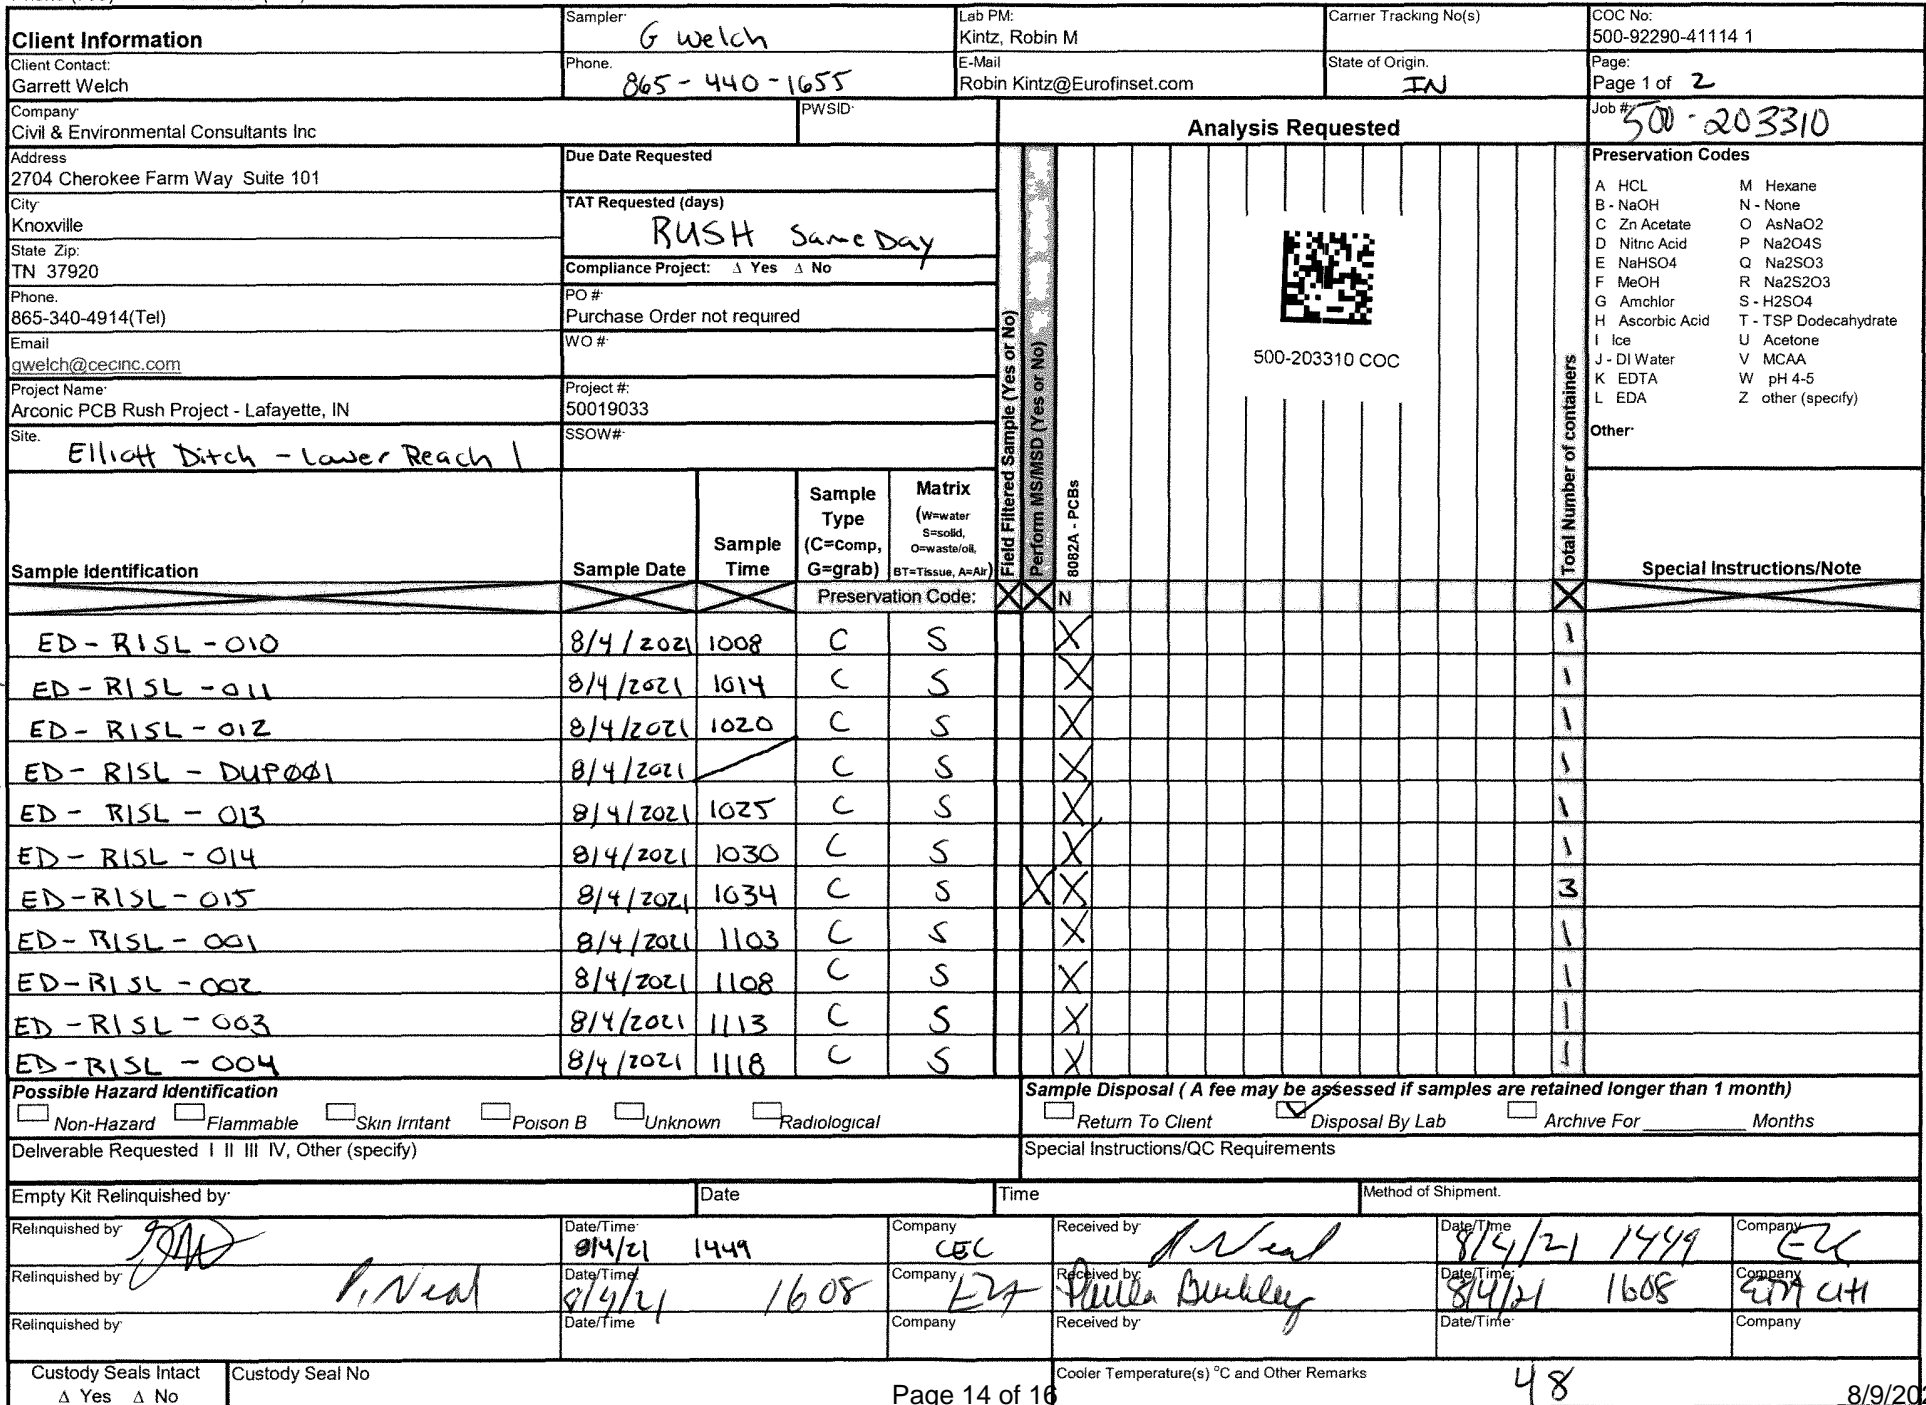 Client Information
Sampler
G Welch
Lab PM:
Kintz, Robin M
Carrier Tracking No(s)
COC No:
500-92290-41114 1
Client Contact:
Garrett Welch
Phone.
865-440-1655
E-Mail
Robin Kintz@Eurofinset.com
State of Origin.
IN
Page:
Page 1 of 2
Company
Civil & Environmental Consultants Inc
PWSID
Analysis Requested
Job #:
500-203310
Address
2704 Cherokee Farm Way Suite 101
City
Knoxville
State Zip:
TN 37920
Phone.
865-340-4914(Tel)
Email
gwelch@cecinc.com
Project Name
Arconic PCB Rush Project - Lafayette, IN
Site.
Elliott Ditch - Lower Reach 1
Due Date Requested
TAT Requested (days)
RUSH Same Day
Compliance Project: Δ Yes Δ No
PO #
Purchase Order not required
WO #
Project #:
50019033
SSOW#
Field Filtered Sample (Yes or No)
Perform MS/MSD (Yes or No)
8082A - PCBs
500-203310 COC
Total Number of containers
Preservation Codes
A HCL M Hexane
B - NaOH N - None
C Zn Acetate O AsNaO2
D Nitric Acid P Na2O4S
E NaHSO4 Q Na2SO3
F MeOH R Na2S2O3
G Amchlor S - H2SO4
H Ascorbic Acid T - TSP Dodecahydrate
I Ice U Acetone
J - DI Water V MCAA
K EDTA W pH 4-5
L EDA Z other (specify)
Other
Sample Identification
Sample Date
Sample Time
Sample Type (C=comp, G=grab)
Matrix (W=water S=solid, O=waste/oil, BT=Tissue, A=Air)
Special Instructions/Note
Preservation Code: X X N X
ED - R1SL - 010 8/4/2021 1008 C S X 1
ED - R1SL - 011 8/4/2021 1014 C S X 1
ED - R1SL - 012 8/4/2021 1020 C S X 1
ED - R1SL - DUP001 8/4/2021 C S X 1
ED - R1SL - 013 8/4/2021 1025 C S X 1
ED - R1SL - 014 8/4/2021 1030 C S X 1
ED - R1SL - 015 8/4/2021 1034 C S X X 3
ED - R1SL - 001 8/4/2021 1103 C S X 1
ED - R1SL - 002 8/4/2021 1108 C S X 1
ED - R1SL - 003 8/4/2021 1113 C S X 1
ED - R1SL - 004 8/4/2021 1118 C S X 1
Possible Hazard Identification
Non-Hazard Flammable Skin Irritant Poison B Unknown Radiological
Sample Disposal ( A fee may be assessed if samples are retained longer than 1 month)
Return To Client Disposal By Lab Archive For Months
Deliverable Requested I II III IV, Other (specify)
Special Instructions/QC Requirements
Empty Kit Relinquished by
Date
Time
Method of Shipment.
Relinquished by Date/Time 8/4/21 1449 Company CEC Received by P. Neal Date/Time 8/4/21 1449 Company
Relinquished by P. Neal Date/Time 8/4/21 1608 Company Received by Paula Buckley Date/Time 8/4/21 1608 Company
Relinquished by Date/Time Company Received by Date/Time Company
Custody Seals Intact
Δ Yes Δ No
Custody Seal No
Cooler Temperature(s) °C and Other Remarks
48
Page 14 of 16
8/9/202